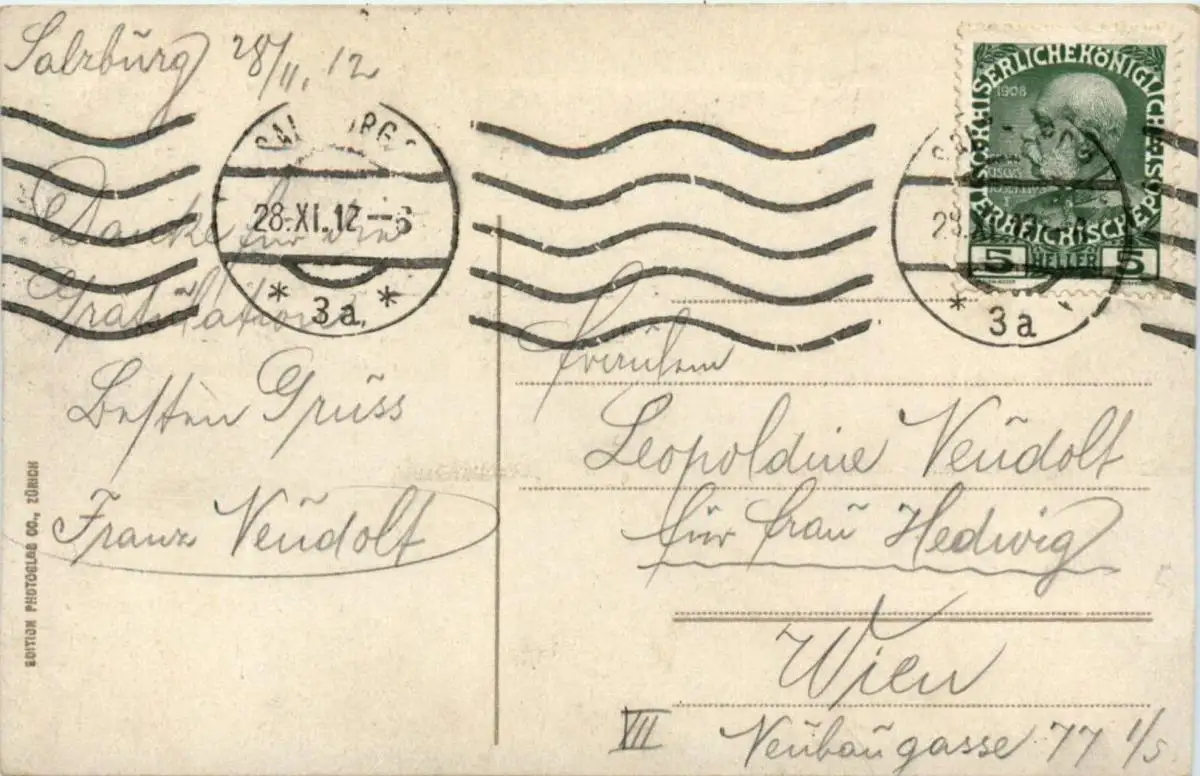 Salzburg 28/11. 12
SALZBURG
28.XI.12-6
* 3a *
Danke für die
Gratulation.
Besten Gruss
Franz Neudolt
EDITION PHOTOGLOB CO., ZÜRICH
KAISERLICHEKÖNIGLICHE
ÖSTERREICHISCHE POST
1908
5 HELLER 5
28.XI.12
* 3a
Fräulein
Leopoldine Neudolt
für Frau Hedwig
Wien
VII Neubaugasse 77 1/5